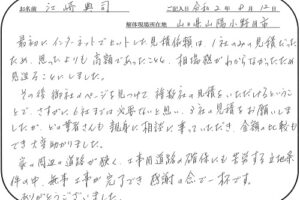 お名前 江崎興司 ご記入日 令和2年8月12日
解体現場所在地 山口県山陽小野田市
最初にインターネットでヒットした見積依頼は、1社のみの見積だった
ため、思ったよりも高額であったことと、相場感がわからなかったため
見送ることにしました。
その後御社のページを見つけて複数社の見積をいただけるという
ことで、さすがに6社までは必要ないと思い、3社の見積をお願いしま
したが、どの業者さんも親身に相談に乗っていただき、金額の比較もで
き大変助かりました。
家の周辺の道路が狭く、工事用道路の確保にも苦労する土地条
件の中、無事工事が完了でき感謝の念で一杯です。
ありがとうございました。